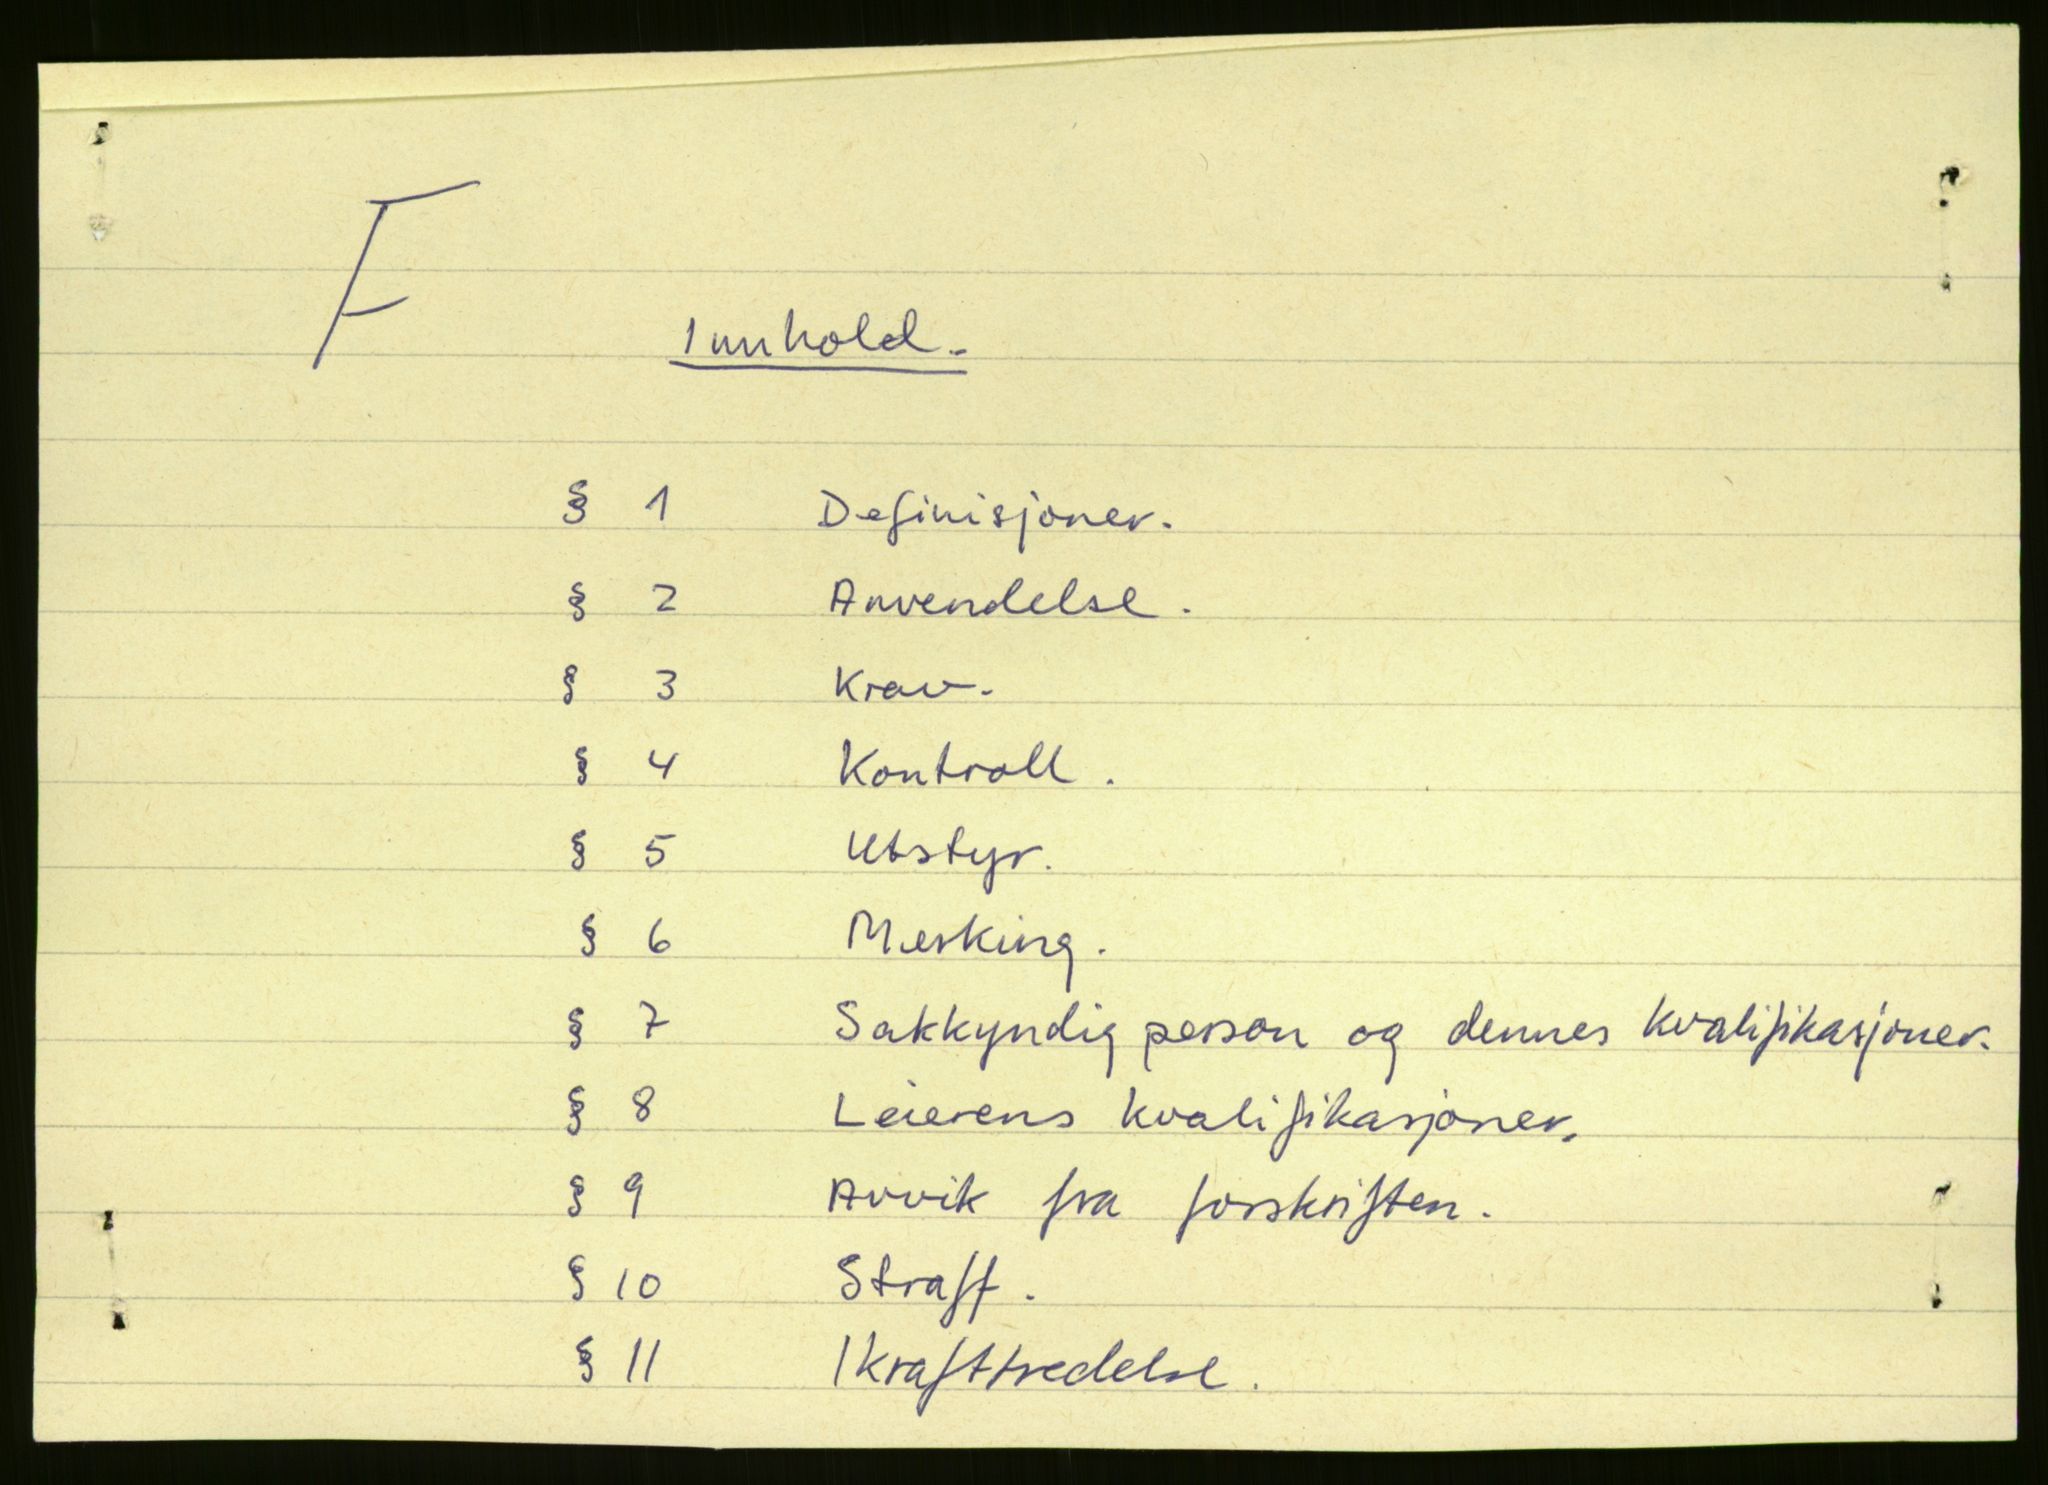 F
Innhold.
§ 1 Definisjoner.
§ 2 Anvendelse.
§ 3 Krav.
§ 4 Kontroll.
§ 5 Utstyr.
§ 6 Merking.
§ 7 Sakkyndig person og dennes kvalifikasjoner.
§ 8 Leierens kvalifikasjoner.
§ 9 Avvik fra forskriften.
§ 10 Straff.
§ 11 Ikrafttredelse.